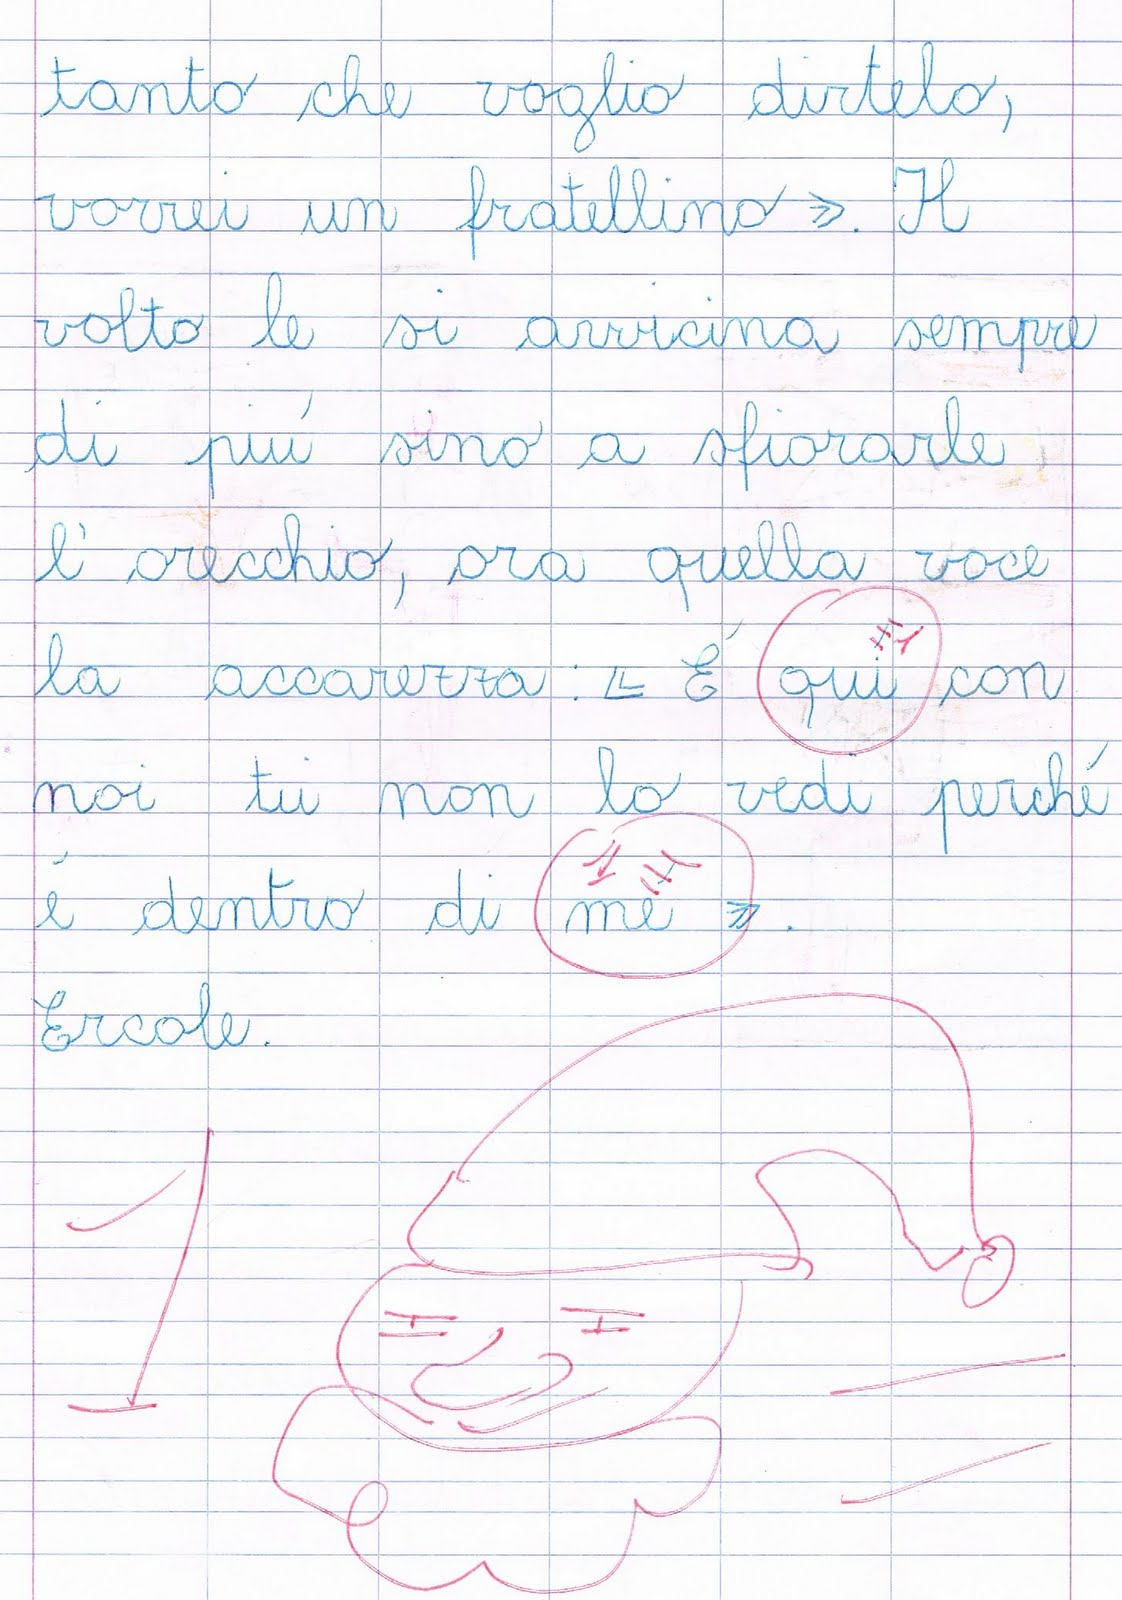 tanto che voglio dirtelo,
vorrei un fratellino ». Il
volto le si avvicina sempre
di piú sino a sfiorarle
l'orecchio, ora quella voce
la accarezza: « É qui con
noi tu non lo vedi perché
é dentro di me ».
Ercole.
1